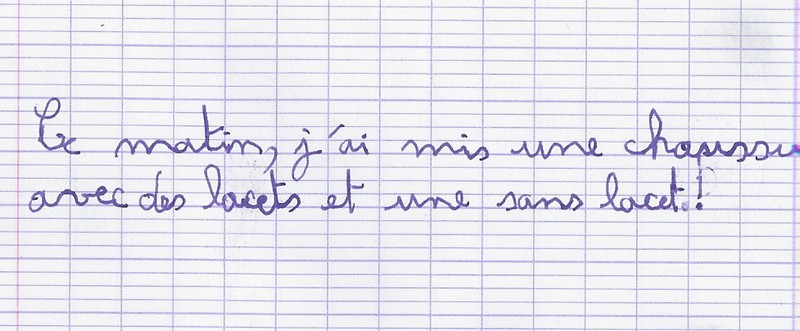 Ce matin, j'ai mis une chaussu
avec des lacets et une sans lacet.!